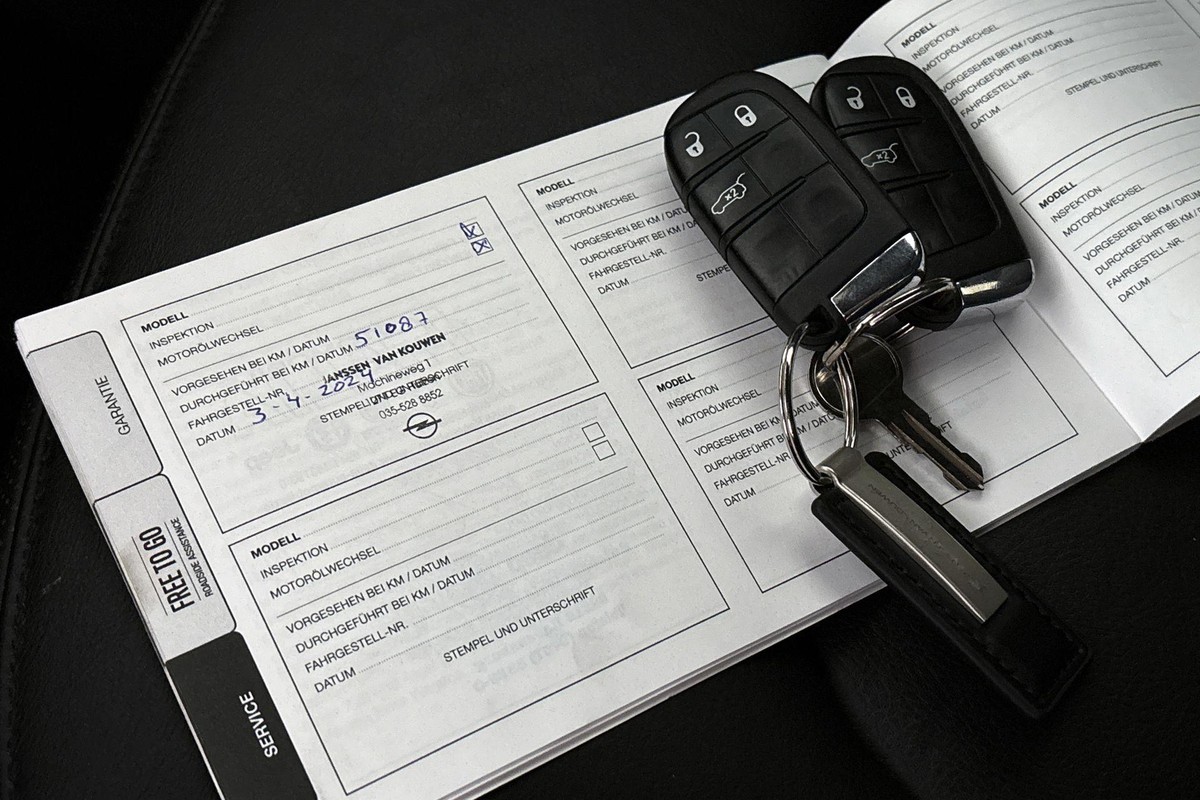 GARANTIE
FREE TO GO
ROADSIDE ASSISTANCE
SERVICE
MODELL
INSPEKTION
MOTORÖLWECHSEL
VORGESEHEN BEI KM / DATUM
DURCHGEFÜHRT BEI KM / DATUM 51087
FAHRGESTELL-NR.
DATUM 3-4-2024
JANSSEN VAN KOUWEN
Machineweg 1
STEMPEL UND UNTERSCHRIFT
035-528 8852
MODELL
INSPEKTION
MOTORÖLWECHSEL
VORGESEHEN BEI KM / DATUM
DURCHGEFÜHRT BEI KM / DATUM
FAHRGESTELL-NR.
DATUM
STEMPEL UND UNTERSCHRIFT
MODELL
INSPEKTION
MOTORÖLWECHSEL
VORGESEHEN BEI KM / DATUM
DURCHGEFÜHRT BEI KM /
FAHRGESTELL-NR.
DATUM
STEMPE
MODELL
INSPEKTION
MOTORÖLWECHSEL
VORGESEHEN BEI KM / DATUM
DURCHGEFÜHRT BEI KM
FAHRGESTELL-NR.
DATUM
UNTERSCHRIFT
MODELL
INSPEKTION
MOTORÖLWECHSEL
VORGESEHEN BEI KM / DATUM
DURCHGEFÜHRT BEI KM / DATUM
FAHRGESTELL-NR.
DATUM
STEMPEL UND UNTERSCHRIFT
MODELL
INSPEKTION
MOTORÖLWECHSEL
VORGESEHEN BEI KM
DURCHGEFÜHRT BEI KM
FAHRGESTELL-NR.
DATUM
x2
x2